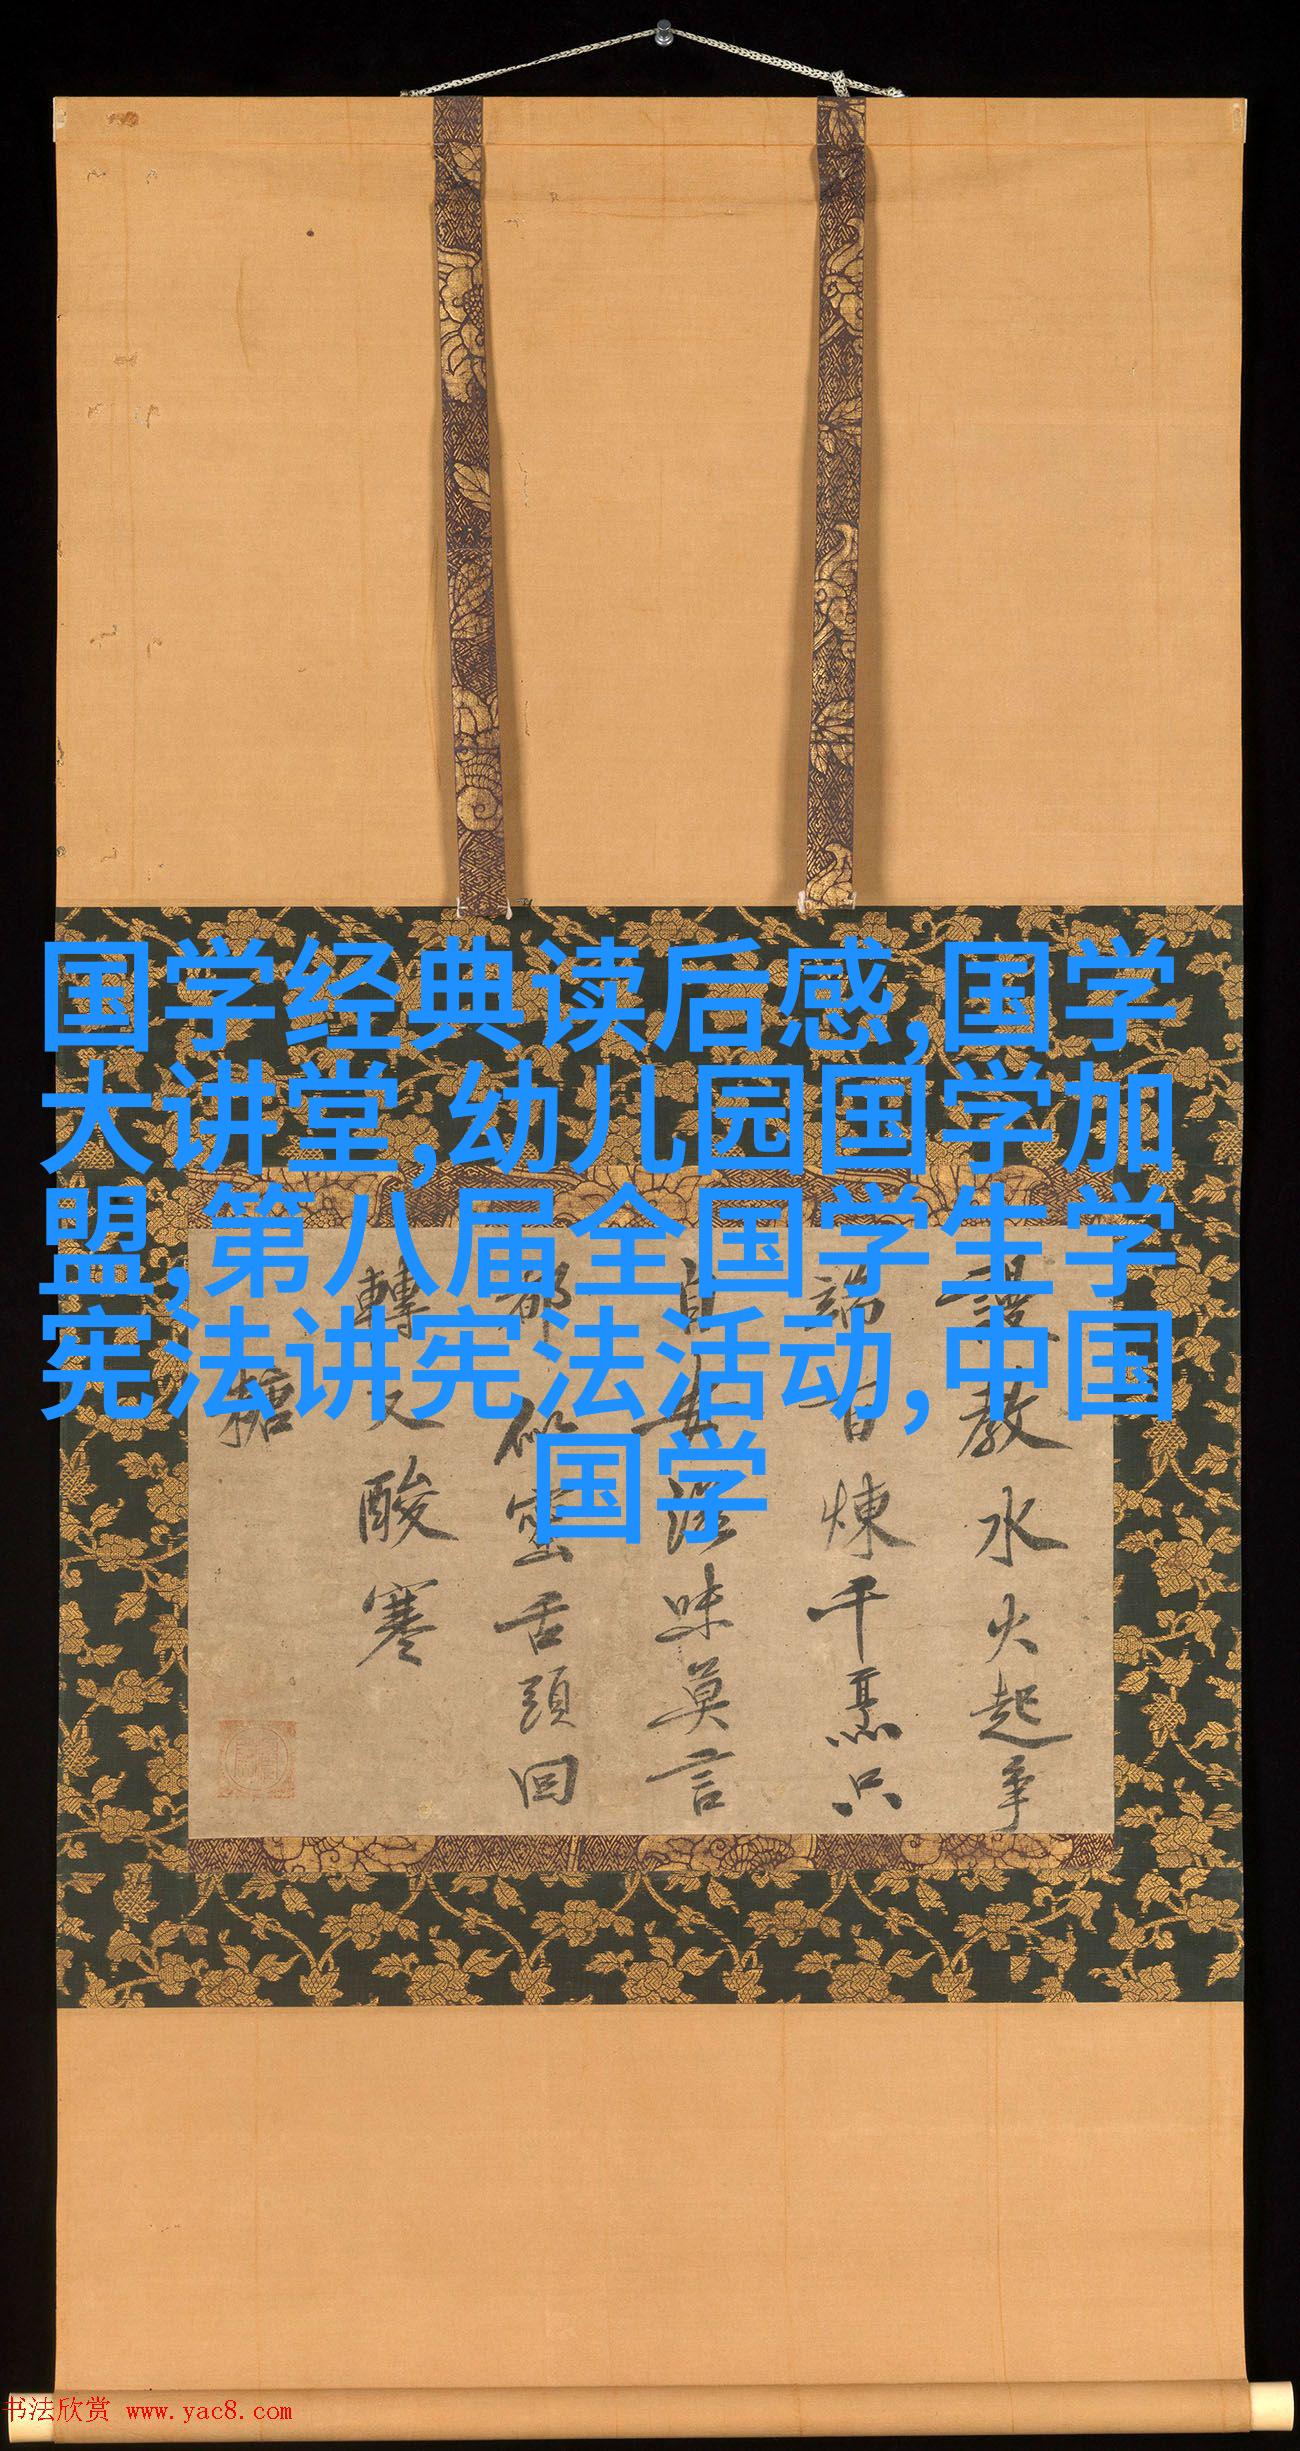 国学经典读后感,国学
大讲堂,幼儿园国学加
盟,第八届全国学生学
宪法讲宪法活动,中国
国学
水火起争
端百煉千烹只
味莫言
都似蜜舌頭回
轉又酸寒
糖
书法欣赏 www.yac8.com